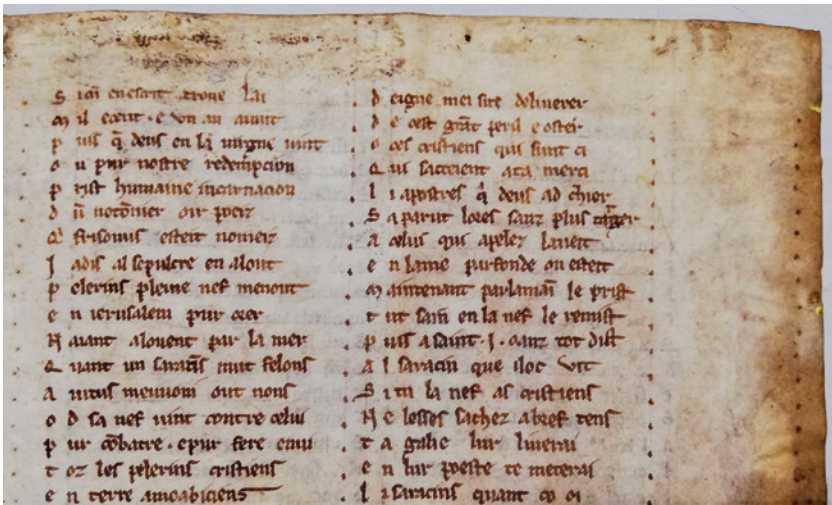 S icū en escrit trove l'ai
M il e cent · e un an aveit
p uis q̄ deus en la virgne vint
o u pur nostre redempcion
p rist humaine incarnacion
d ū notōnier oir poez
Q' frisonus esteit nomez
J adis al sepulcre en alout
p elerins pleine nef menout
e n ierusalem pur orer
N aiant alouent par la mer
Q uant un sarazīs mut felons
A vitus mennom out nons
o d sa nef vint contre celui
p ur cōbatre · e pur fere ennui
t oz les pelerins cristiens
e n terre
d eigne mei sire deliverer
d e cest grāt peril e oster
o ces cristiens qui sunt ci
Q ui sacreient a ta merci
l i apostres q̄ deus ad chier
S aparut lores sanz plus tārger
a celui qui apeler laveit
e n laive parfonde ou esteit
M aintenant par la main le prist
t ut sain en la nef le remist
p uis a saint · J · oanz tot dist
a l saracin que iloc vit
S i tu la nef as cristiens
N e lesses sachez a bref tens
t a galie lur liverai
e n lur poeste te meterai
l i saracins quant co oi